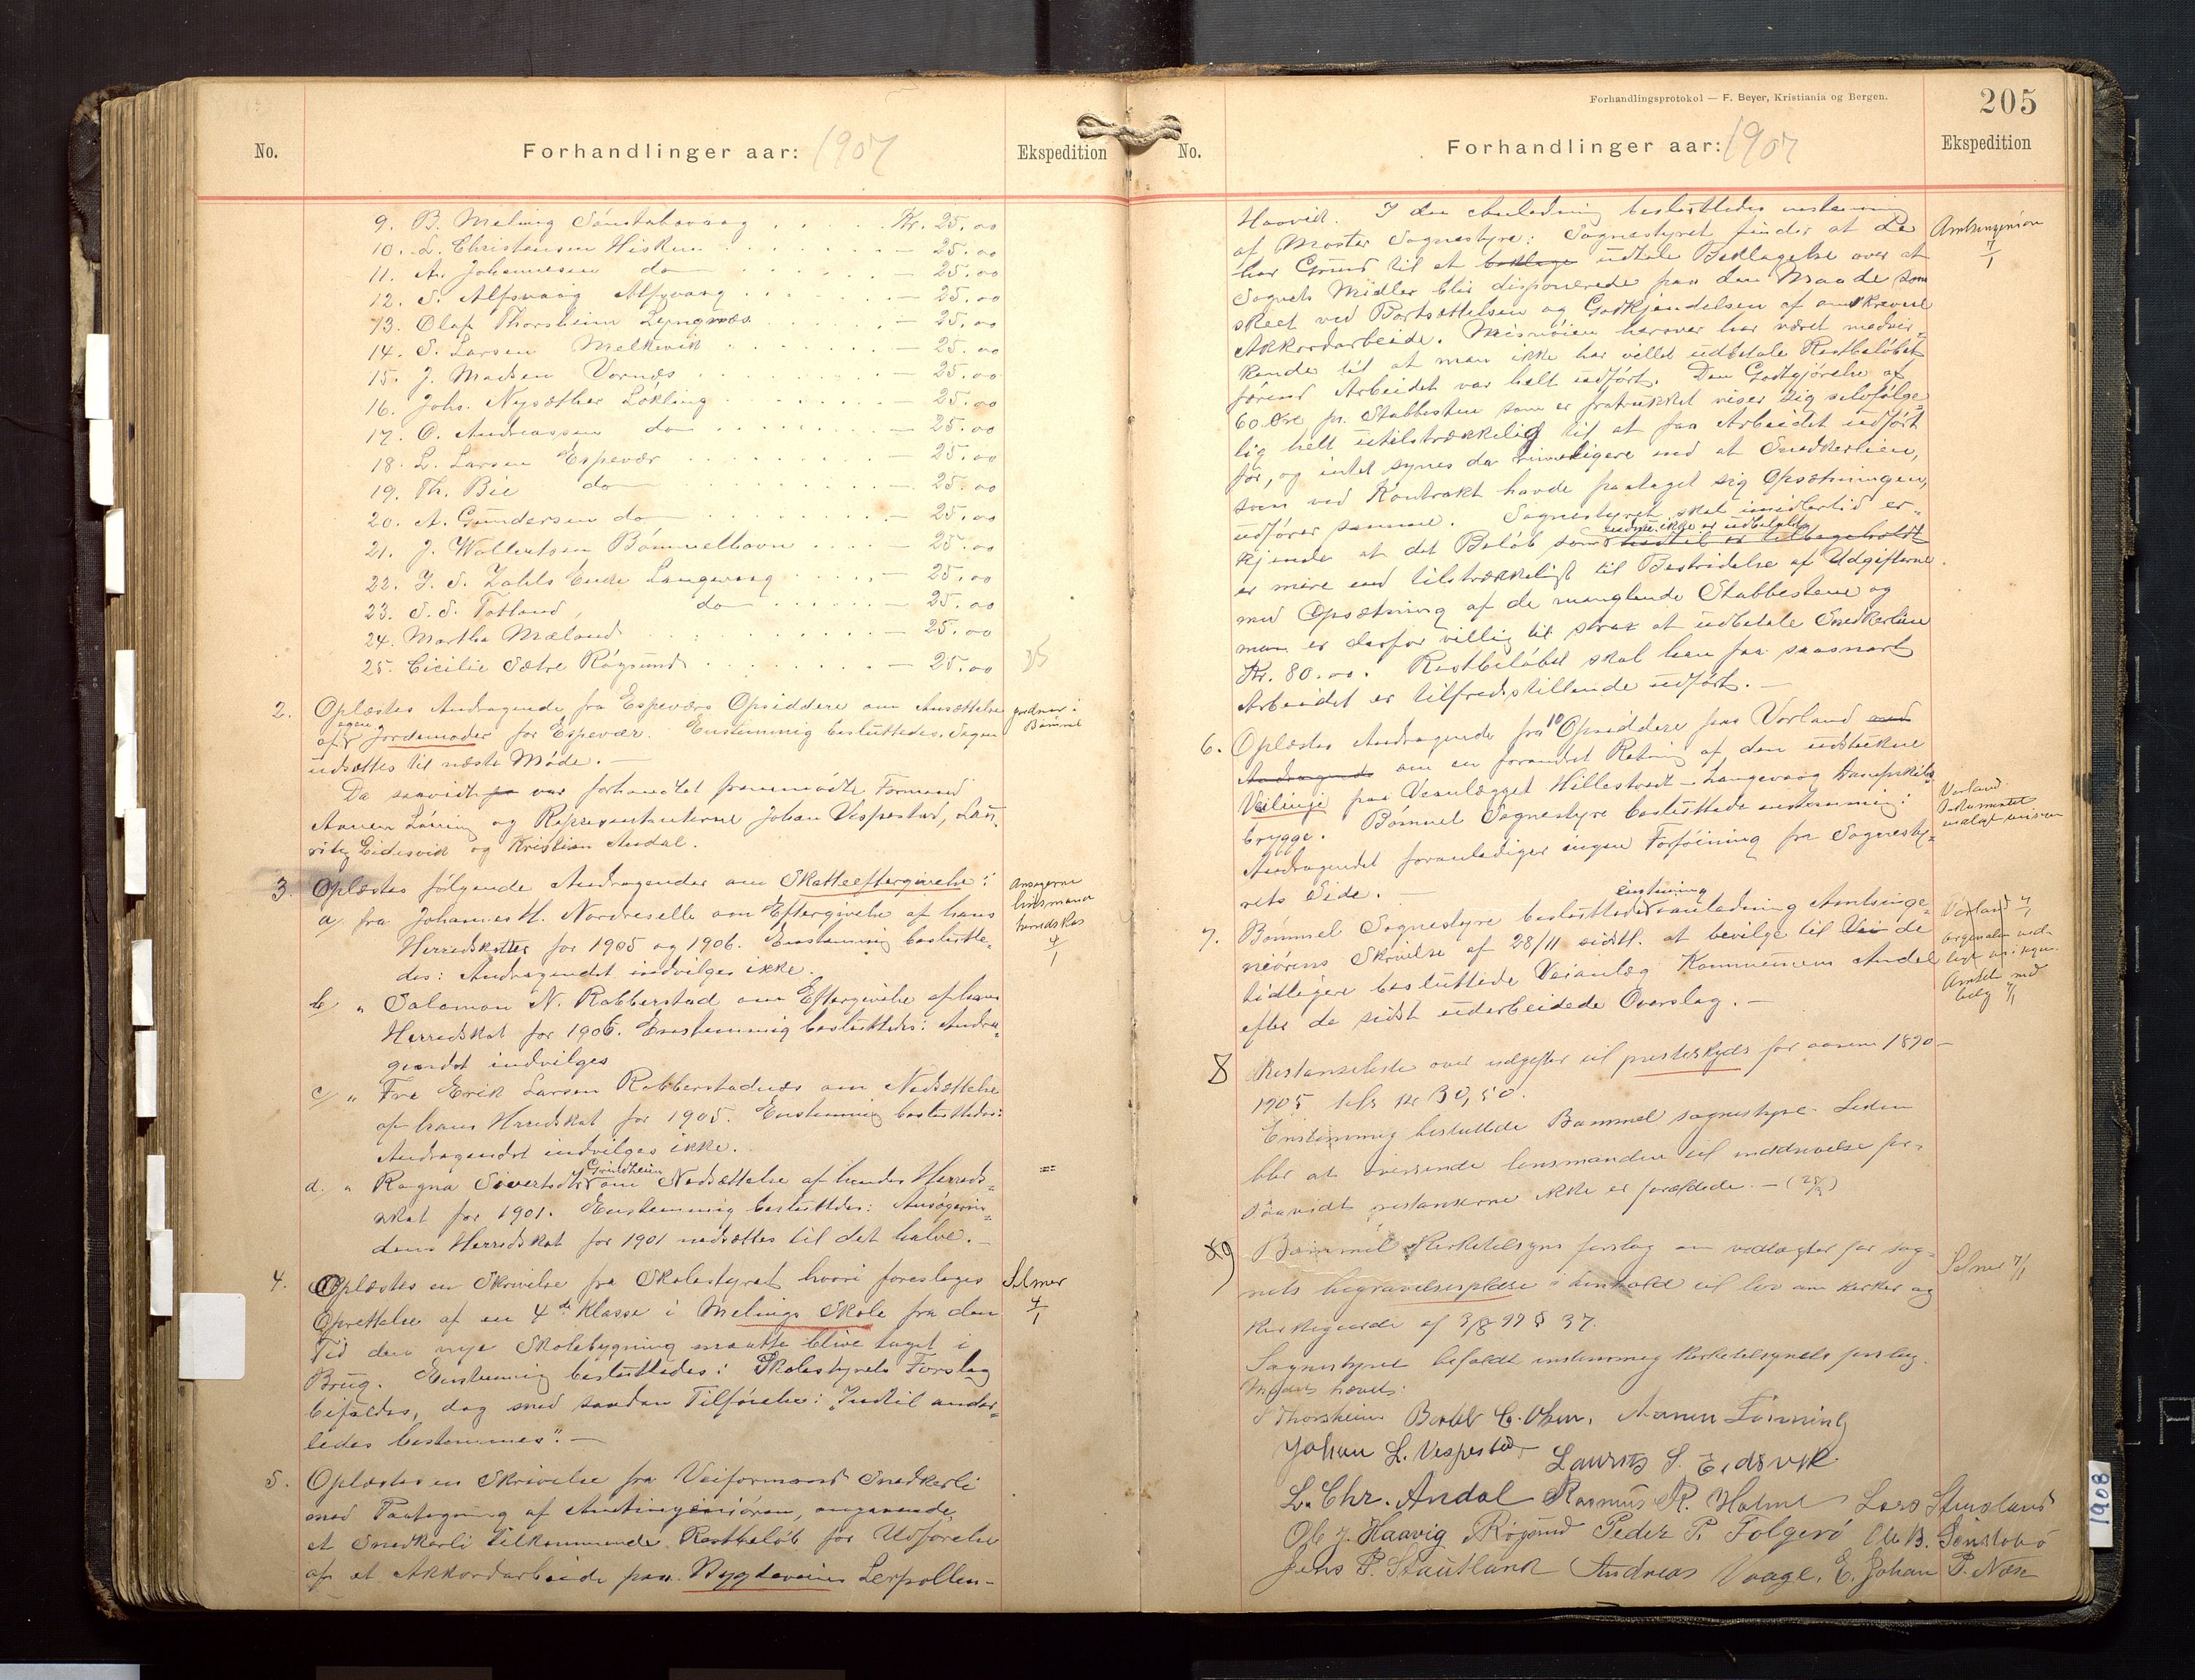 No.
Forhandlinger aar: 1907
Ekspedition
9. B. Meling Sønstabøvaag Kr. 25.00
10. L. Christensen Hisken — 25.00
11. A. Johannesen do — 25.00
12. S. Alfsvaag Alfsvaag — 25.00
13. Olaf Thorsheim Lyngnæs — 25.00
14. S. Larsen Melkevik — 25.00
15. J. Madsen Vornæs — 25.00
16. Johs. Nysæther Løkling — 25.00
17. O. Andreassen do — 25.00
18. L. Larsen Espevær — 25.00
19. Th. Bie do — 25.00
20. A. Gundersen do — 25.00
21. J. Wollertsen Bømmelhavn — 25.00
22. J. S. Zahls Enke Langevaag — 25.00
23. S. S. Totland, do — 25.00
24. Martha Mæland — 25.00
25. Cicilie Sætre Røgsund — 25.00
2. Oplæstes Andragende fra Espeværs Opsiddere om Ansættelse
af egen Jordemoder for Espevær. Enstemmig besluttedes. Sagen
udsættes til næste Møde. —
Da saavidt var forhandlet fremmødte Formand
Aamen Lönning og Repræsentanterne Johan Vespestad, Lau-
ritz Eidesvik og Kristian Andal.
3. Oplæstes følgende Andragender om Skatteeftergivelse:
a, fra Johannes H. Nordreselle om Eftergivelse af hans
Herredskatter for 1905 og 1906. Enstemmig beslutte-
des: Andragendet indvilges ikke.
Ansøgerne
lensmand
herredskas
4/1
b, " Salamon N. Robberstad om Eftergivelse af hans
Herredskat for 1906. Enstemmig besluttedes: Andra-
gendet indvilges
c, " Fra Erik Larsen Robberstadnæs om Nedsættelse
af hans Herredskat for 1905. Enstemmig besluttedes:
Andragendet indvilges ikke.
d. " Ragna Sivertsdtr Grindheim om Nedsættelse af hendes Herreds-
skat for 1901. Enstemmig besluttedes: Ansøgerin-
dens Herredskat for 1901 nedsættes til det halve. —
4. Oplæstes en Skrivelse fra Skolestyret hvori foreslages
Oprettelse af en 4de Klasse i Melings Skole fra den
Tid den nye Skolebygning maatte blive taget i
Brug. Enstemmig besluttedes: Skolestyrets Forslag
bifaldes, dog med saadan Tilføielse: "Indtil ander-
ledes bestemmes". —
Selmer
4/1
5. Oplæstes en Skrivelse fra Veiformand Snedkerli
med Paategning af Amtingeniøren, angaaende
et Snedkerli tilkommende Restbeløb for Udførelse
af et Akkordarbeide paa Bygdeveien Lerpollen-
Forhandlingsprotokol — F. Beyer, Kristiania og Bergen.
205
No.
Forhandlinger aar: 1907
Ekspedition
Haavik. I den Anledning besluttedes enstemmig
af Moster Sognestyre: Sognestyret finder at de
har Grund til at beklage udtale Beklagelse over at
Sognets Midler blir disponerede paa den Maade som
skeet ved Bortsættelsen og Godkjendelsen af omskrevne
Akkordarbeide. Misnøien herover har været medvir-
kende til at man ikke har villet udbetale Restbeløbet
førend Arbeidet var helt udført. Den Godtgjørelse af
60 Øre pr. Stabbesten som er fratrukket viser sig selvfølge-
lig helt utilstrækkelig til at faa Arbeidet udført
for, og intet synes da rimeligere end at Snedkerlien,
som ved Kontrakt havde paataget sig Opsætningen,
udfører samme. Sognestyret skal imidlertid er-
kjende at det Beløb som endnu ikke er udbetalt indtil er tilbageholdt
er mere end tilstrækkeligt til Bestridelse af Udgifterne
med Opsætning af de manglende Stabbestene og
man er derfor villig til strax at udbetale Snedkerlien
Kr. 80.00. Restbeløbet skal han faa saasnart
Arbeidet er tilfredsstillende udført. —
Amtsingeniøren
7/1
6. Oplæstes Andragende fra 10 Opsiddere paa Vorland med
Andragende om en forandret Retning af den udstukne
Veilinje paa Veianlægget Hillestvedt — Langevaag Dampskibs-
brygge. Bømmel Sognestyre besluttede enstemmig:
Andragendet foranlediger ingen Forføining fra Sognesty-
rets Side. —
7. Bømmel Sognestyre besluttede enstemmig i anledning Amtsinge-
niørens Skrivelse af 28/11 sidstl. at bevilge til Vei de
tidligere besluttede Veianlæg Kommunens Andel
efter de sidst udarbeidede Overslag. —
8 Restanseliste over udgifter til presteskyds for aarene 1890–
1905 tils kr 30,50.
Enstemmig besluttede Bømmel sognestyre. Listen
blir at oversende lensmanden til inddrivelse for-
saavidt restanserne ikke er forældede. —
9 Bømmel Kirketilsyns forslag om vedtægter for sog-
nets begravelsesplase i henhold til lov om kirker og
kirkegaarde af 3/8 97 § 37.
Sognestyret bifaldt enstemmig kirketilsynets forslag.
Mødet hævet.
Selmer 7/1
S Thorsheim Bertel C. Olsen. Aamen Lönning
Johan L. Vespestad Laurits S. Eidsvik
L. Chr. Andal Rasmus R. Holme Lars Stensland
Ole J. Haavig Røgsund Peder P. Folgerö Ole B. Sønstabö
Jens P. Stautland Andreas Vaage. E. Johan P. Næss
1908